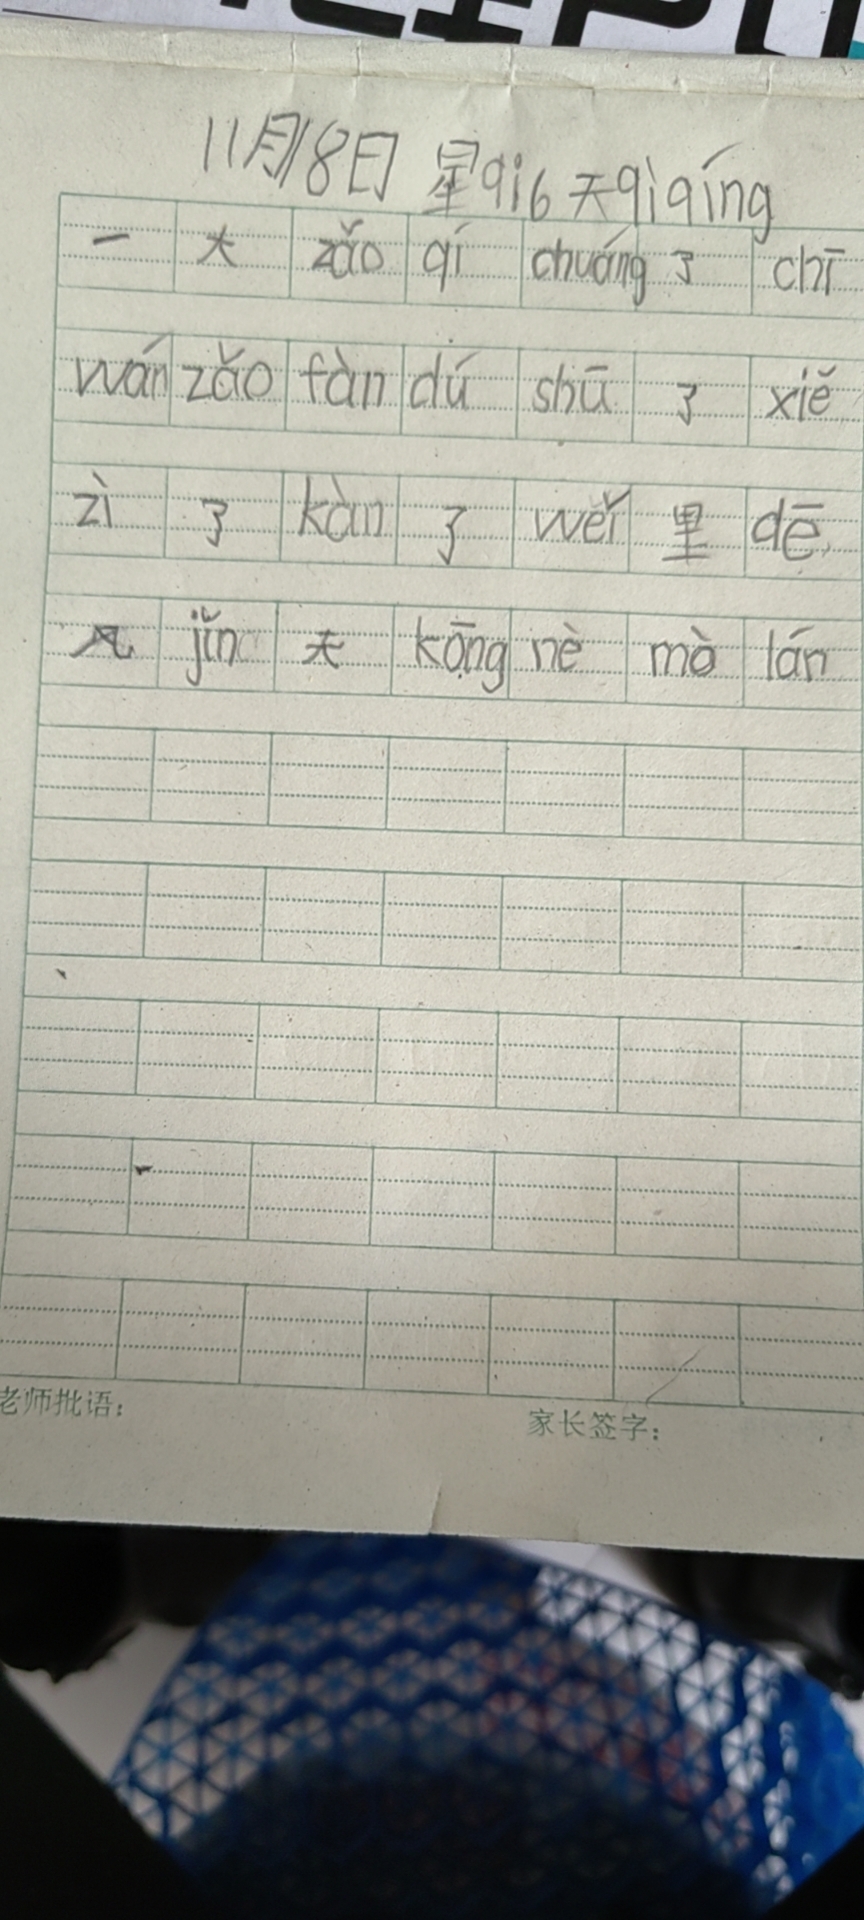 11月18日 星qi6 天qìqíng
一大zǎo qí chuáng了chī
wán zǎo fàn dú shū了xiě
zì了kàn了wěi里dē
风jǐn天kōng nè mò lán
老师批语：
家长签字：